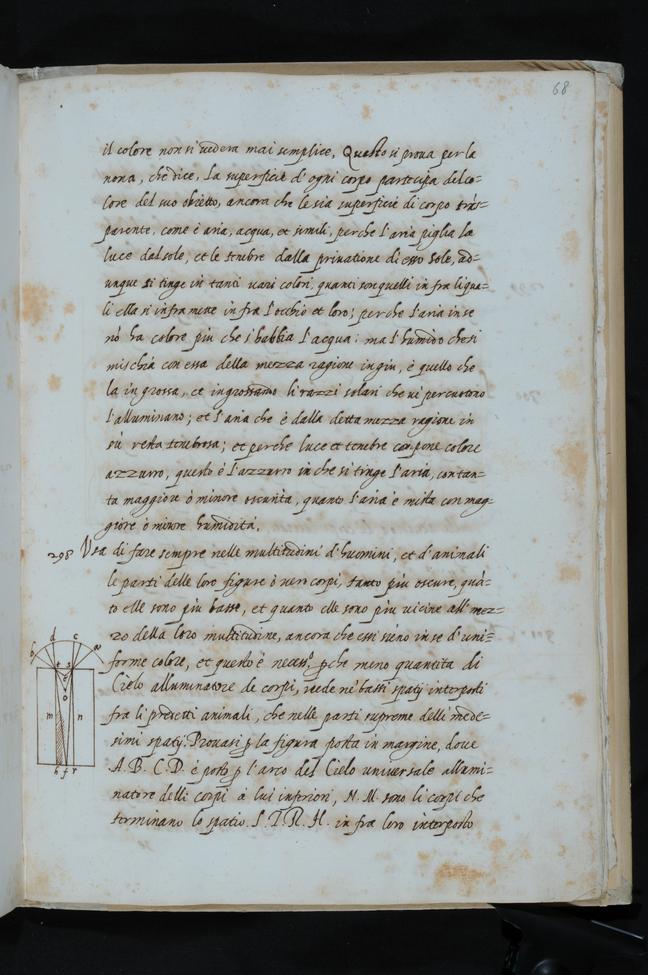 68
il colore non si vedera mai semplice, Questo si proua per la
nona, che dice, La superficie d'ogni corpo partecipa del co=
lore del suo obietto, ancora che le sia superficie di corpo tras=
parente, come è aria, acqua, et simili, perche l'aria piglia la
luce dal sole, et le tenebre dalla priuatione di esso sole, ad=
unque si tinge in tanti uarij colori, quanti son quelli infra li qua=
li ella si inframette infra l'occhio et loro; perche l'aria in se
nō ha colore più che s'habbia l'acqua: ma l'humido che si
mischia con essa della mezza ragione in giu, è quello che
la ingrossa, et ingrossando li razzi solari che ui percuotono
l'alluminano; et l'aria che è dalla detta mezza ragione in
sù resta tenebrosa; et perche luce et tenebre conpone colore
azzurro, questo è l'azzurro in che si tinge l'aria, con tan=
ta maggiore ò minore oscurità, quanto l'aria è mista con mag=
giore ò minore humidità.
298 Vsa di fare sempre nelle multitudini d'huomini, et d'animali
le parti delle loro figure ò ueri corpi, tanto più oscure, quā=
to elle sono più basse, et quanto elle sono più uicine all' mez=
zo della loro multitudine, ancora che essi sieno in se d'uni=
forme colore, et questo è necess.º pche meno quantita di
Cielo alluminatore de corpi, uede ne bassi spatij interposti
fra li predetti animali, che nelle parti supreme delli mede=
simi spatij. Prouasi p la figura posta in margine, doue
A. B. C. D. è posto p l'arco del Cielo uniuersale allumi=
natore delli corpi à lui inferiori, N. M. sono li corpi che
terminano lo spatio S. T. R. H. infra loro interposto
b d c a
t s
o
m n
h f r